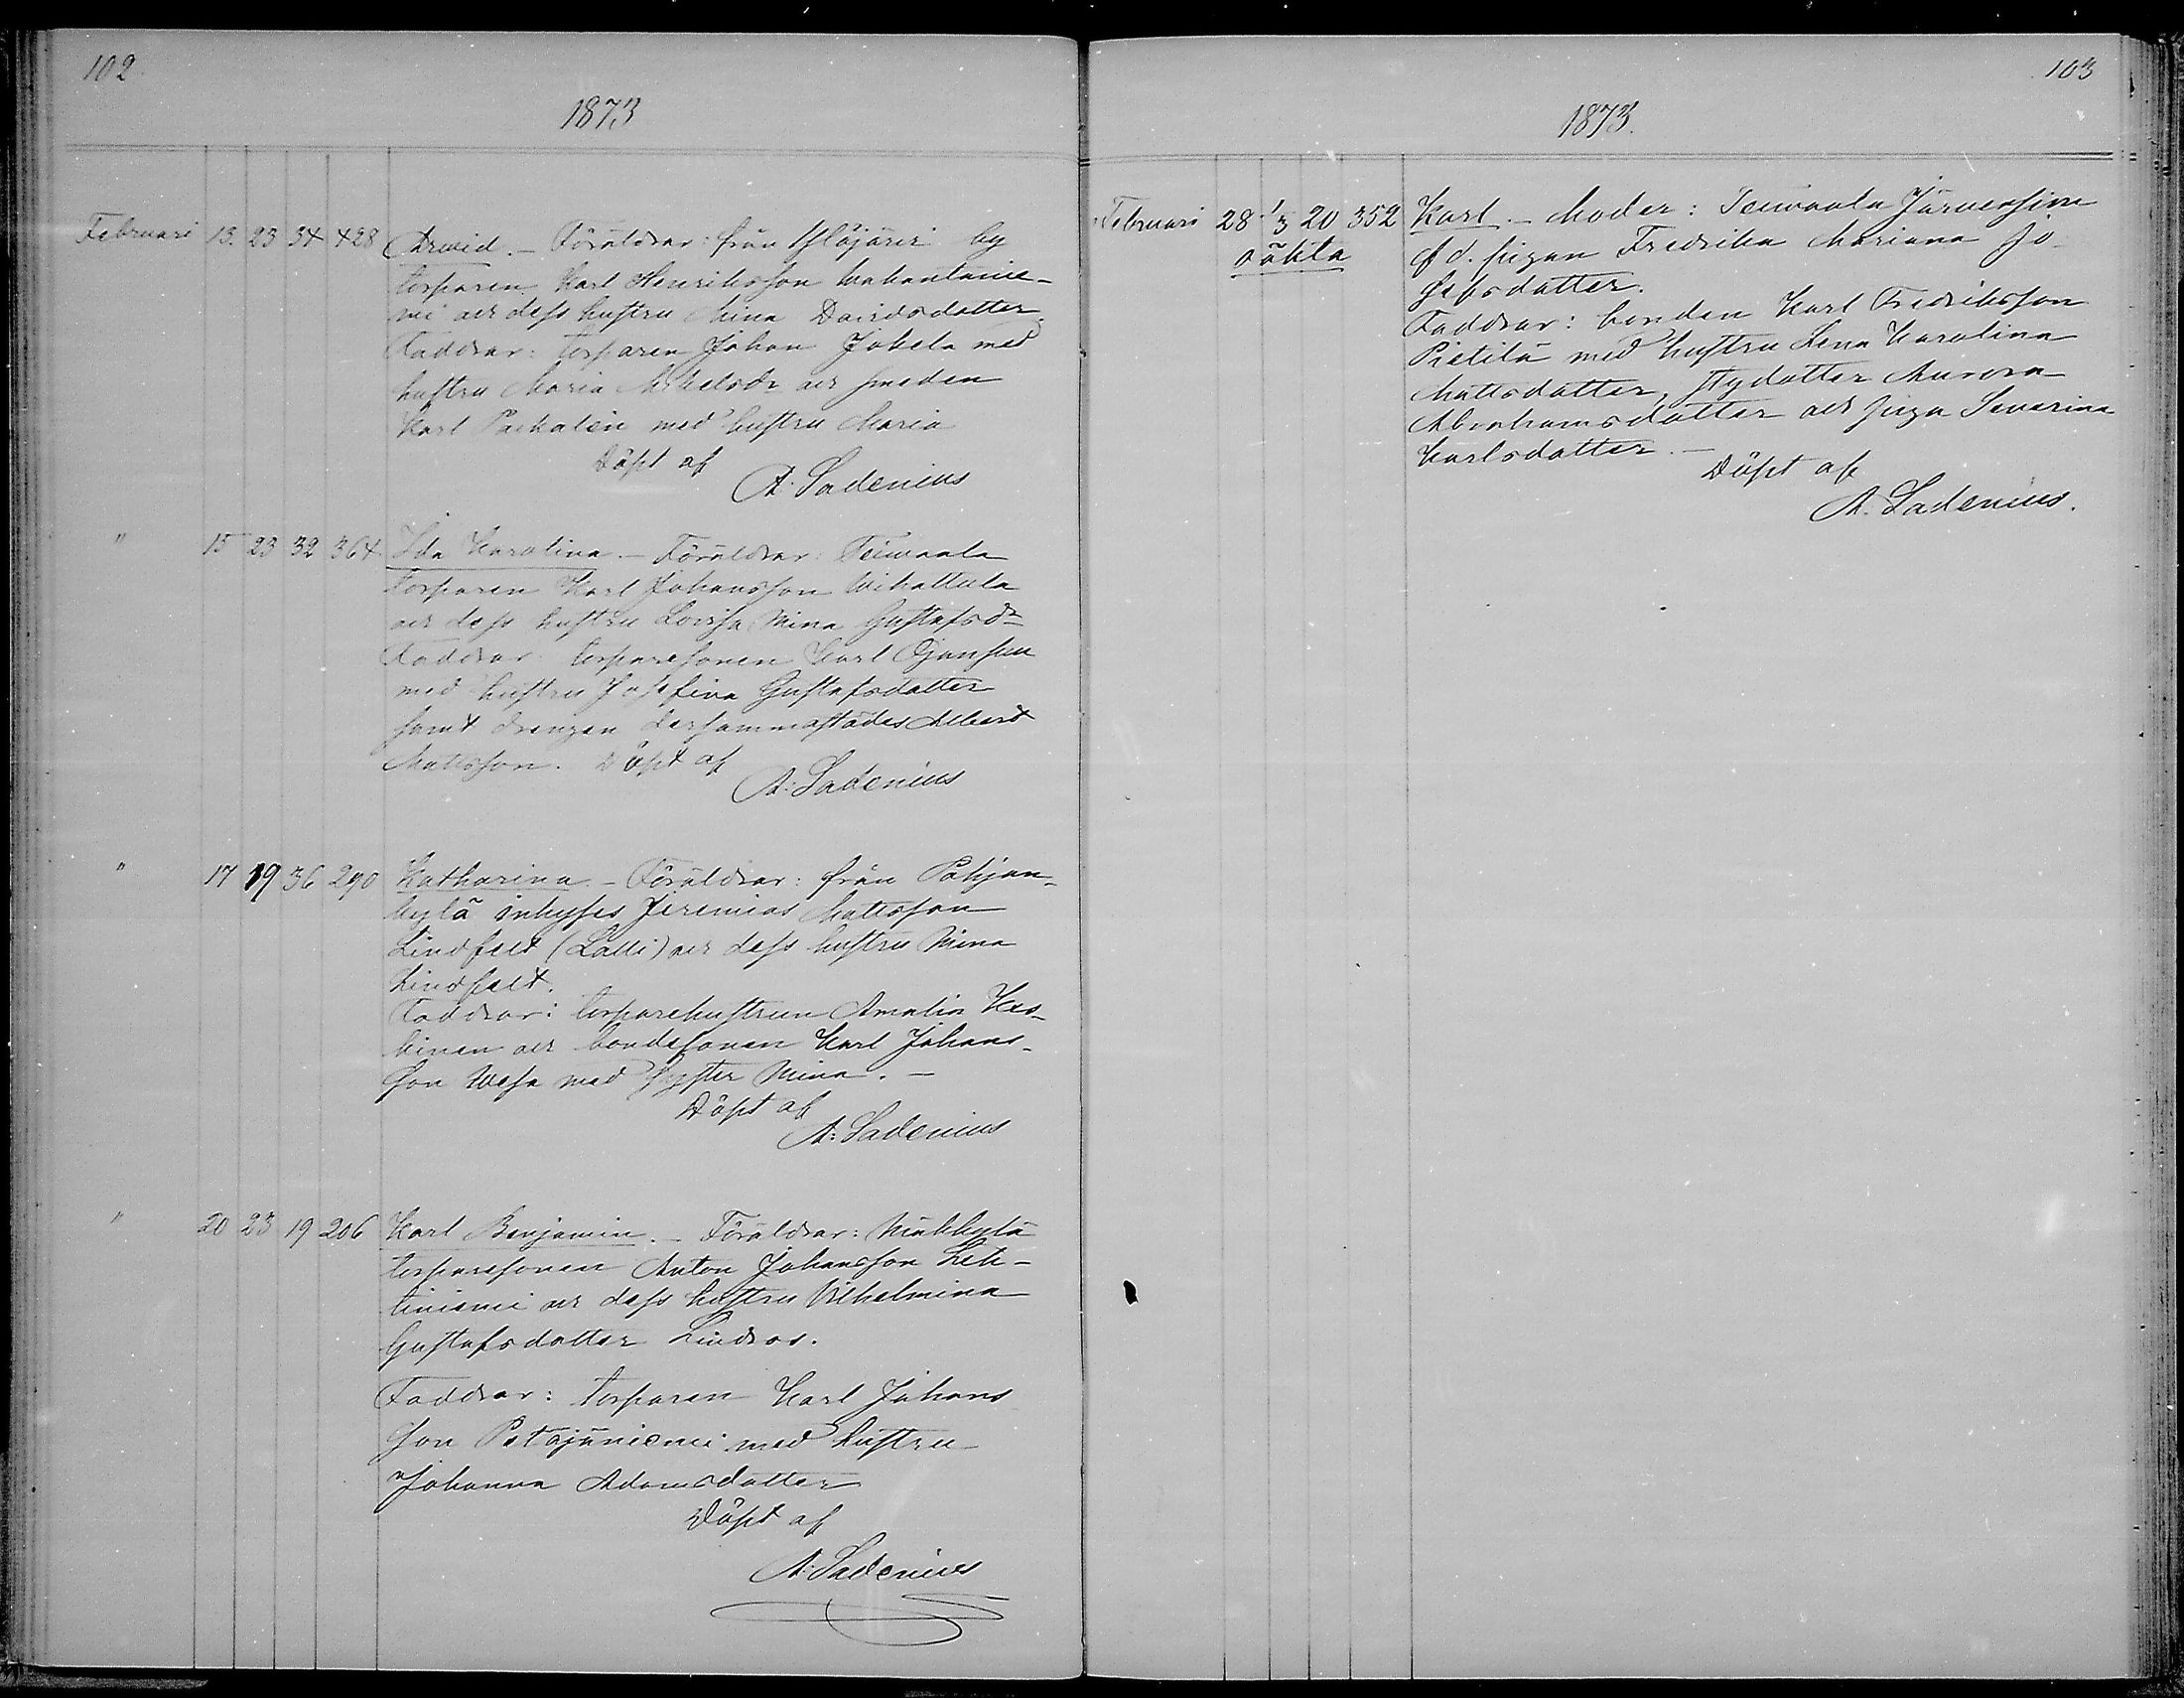 102
1873
Februari 13. 23 34 428 Arvid. – Föräldrar: från Ylöjärvi by
torparen Karl Henriksson Wahantanie-
mi och dess hustru Mina Davidsdotter.
Faddrar: torparen Johan Jokela med
hustru Maria Mikelsdr och smeden
Karl Packalén med hustru Maria
Döpt af
A. Sadenius
" 15 23 32 364. Ida Karolina. – Föräldrar: Teiwaala
torparen Karl Johansson Wihattula
och dess hustru Lovisa Mina Gustafsdr
Faddrar torparesonen Karl Ojansuu
med hustru Josefina Gustafsdotter
samt drengen dersammastädes Albert
Mattsson. Döpt af
A. Sadenius
" 17 19 36 290 Katharina. – Föräldrar: från Pohjan-
kylä inhyses Jeremias Mattsson
Lindfelt (Lalli) och dess hustru Mina
Lindfelt.
Faddrar: torparehustrun Amalia Kes-
kinen och bondesonen Karl Johans-
son Wesa med syster Mina. –
Döpt af
A. Sadenius
" 20 23 19 206 Karl Benjamin. – Föräldrar: Mäkkylä
torparesonen Anton Johansson Leh-
tiniemi och dess hustru Vilhelmina
Gustafsdotter Lindros.
Faddrar: torparen Karl Johans
son Petäjäniemi med hustru
Johanna Adamsdotter
Döpt af
A. Sadenius
103
1873.
Februari 28 1/3 20 352 Karl. – Moder: Teiwaala Järvensivu
oäkta
f d. pigan Fredrika Mariana Jo-
sefsdotter.
Faddrar: bonden Karl Fredriksson
Pietilä med hustru Lena Karolina
Mattsdotter, styfdotter Aurora
Abrahamsdotter och piga Severina
Karlsdotter. –
Döpt af
A. Sadenius.